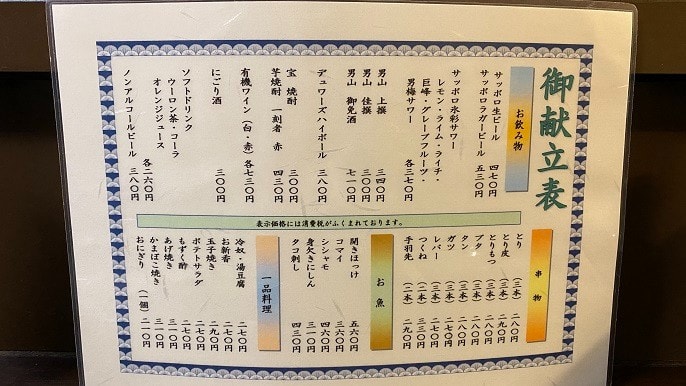 御献立表
お飲み物
サッポロ生ビール 四七〇円
サッポロラガービール 五三〇円
サッポロ氷彩サワー
レモン・ライム・ライチ・
巨峰・グレープフルーツ・
男梅サワー 各三七〇円
男山 上撰 三四〇円
男山 佳撰 三〇〇円
男山 御免酒 七一〇円
デュワーズハイボール 三八〇円
宝 焼酎 三〇〇円
芋焼酎 一刻者 赤 四三〇円
有機ワイン（白・赤）各七三〇円
にごり酒 三〇〇円
ソフトドリンク
ウーロン茶・コーラ
オレンジジュース 各二六〇円
ノンアルコールビール 三八〇円
表示価格には消費税がふくまれております。
串物
とり （三本） 二八〇円
とり皮 （三本） 二九〇円
とりもつ （三本） 二八〇円
ブタ （三本） 二八〇円
タン （三本） 二八〇円
ガツ （三本） 二七〇円
レバー （三本） 二七〇円
つくね （二本） 三三〇円
手羽先 （二本） 二九〇円
お魚
開きほっけ 五六〇円
コマイ 三六〇円
シシャモ 四六〇円
身欠きにしん 三一〇円
タコ刺し 四三〇円
一品料理
冷奴・湯豆腐 二七〇円
お新香 二七〇円
玉子焼き 二九〇円
ポテトサラダ 二七〇円
もずく酢 二七〇円
あげ焼き 三一〇円
かまぼこ焼き 三一〇円
おにぎり （一個） 二一〇円